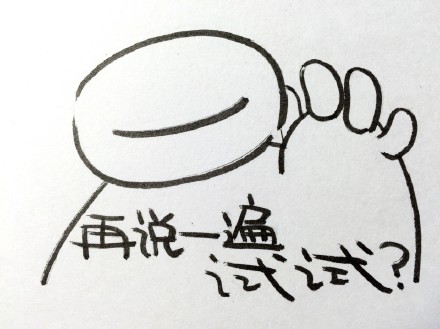 再说一遍
试试?